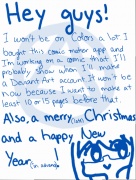 Hey guys!
I won't be on Colors a lot. I
bought this comic maker app and
I'm working on a comic that I'll
probably show when I'll make
a DeviantArt account. It won't be
now because I want to make at
least 10 or 15 pages before that.
Also, a merry (late) Christmas
and a happy New
Year! (in advance)